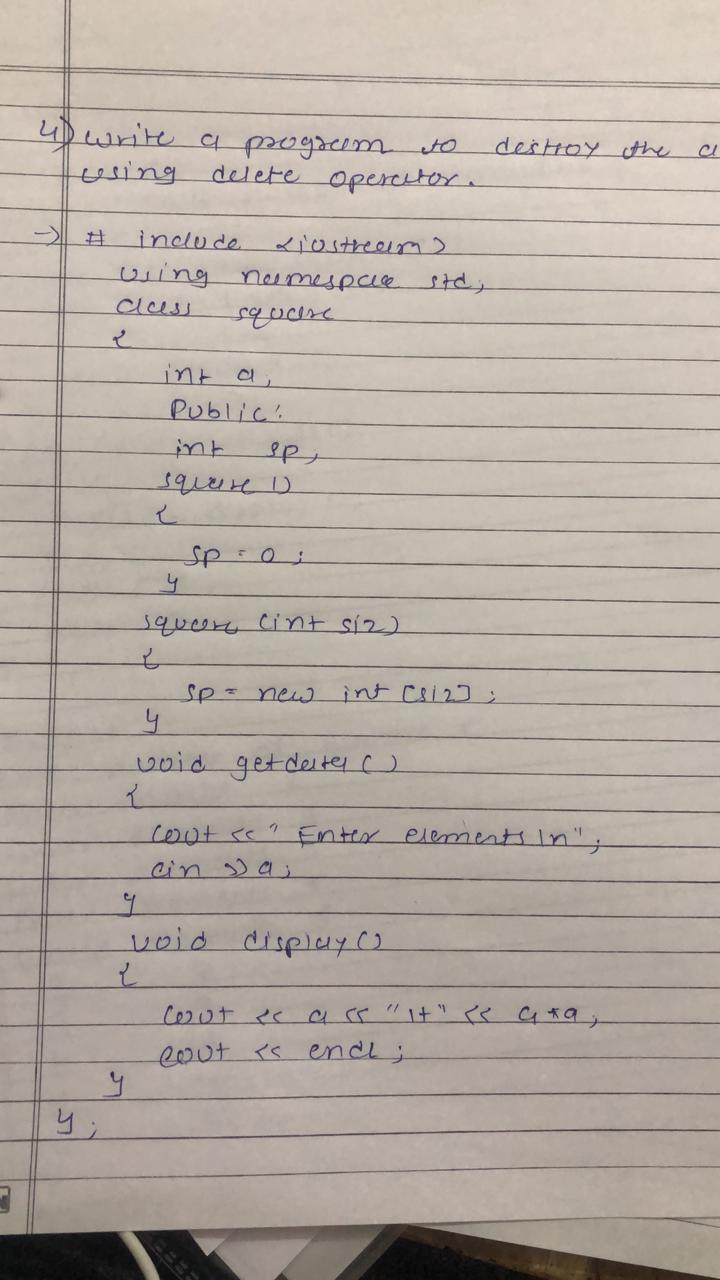 4) write a program to destroy the a
using delete operator.
→ # include <iostream>
using namespace std;
class square
{
int a;
Public:
int sp;
square ()
{
sp = 0;
}
square (int siz)
{
sp = new int [siz];
}
void getdata()
{
cout << " Enter elements \n";
cin >> a;
}
void display()
{
cout << a << "\t" << a*a;
cout << endl;
}
};